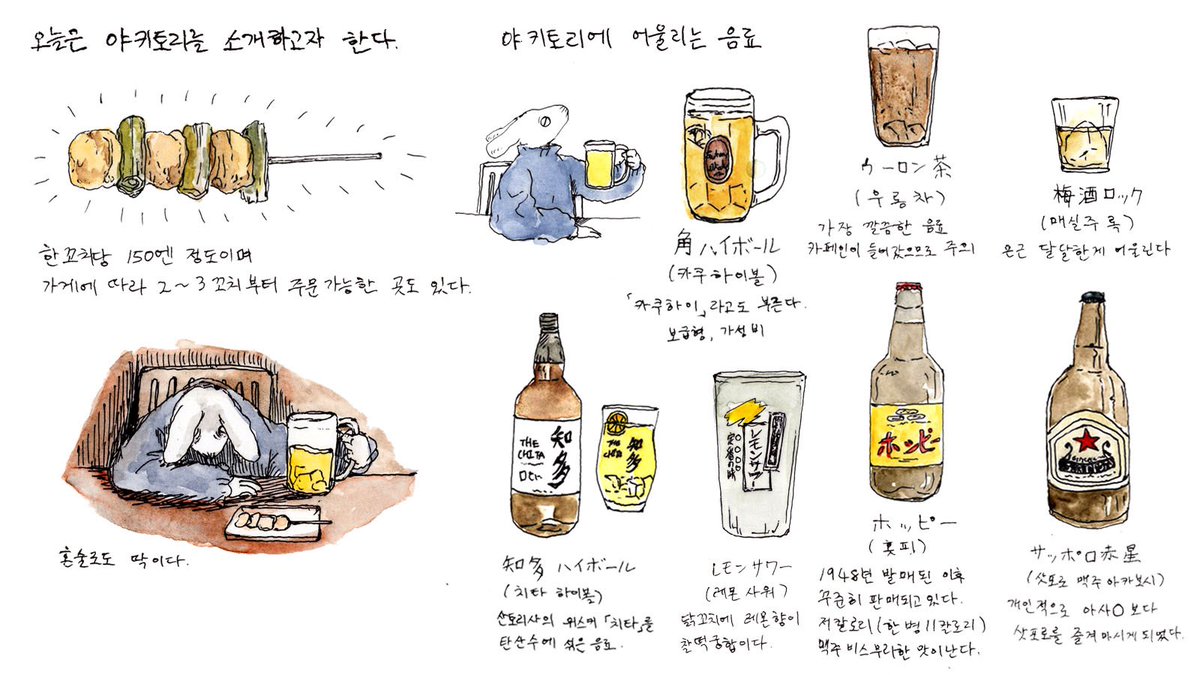 오늘은 야키토리를 소개하고자 한다.
한꼬치당 150엔 정도이며
가게에 따라 2~3꼬치부터 주문가능한 곳도 있다.
혼술로도 딱이다.
야키토리에 어울리는 음료
角ハイボール
(카쿠하이볼)
「카쿠하이」라고도 부른다.
보급형, 가성비
ウーロン茶
(우롱차)
가장 깔끔한 음료
카페인이 들어갔으므로 주의
梅酒ロック
(매실주 록)
은근 달달한게 어울린다
THE
CHITA
知多
THE
CHITA
知多
知多 ハイボール
(치타 하이볼)
산토리사의 위스키 「치타」를
탄산수에 섞은 음료.
レモンサワー
レモンサワー
(레몬 사워)
닭꼬치에 레몬향이
찰떡궁합이다.
ホッピー
ホッピー
(홋피)
1948년 발매된 이후
꾸준히 판매되고있다.
저칼로리(한 병 11칼로리)
맥주 비스무리한 맛이난다.
サッポロ赤星
(삿포로 맥주 아카보시)
개인적으로 아사○ 보다
삿포로를 즐겨마시게 되었다.